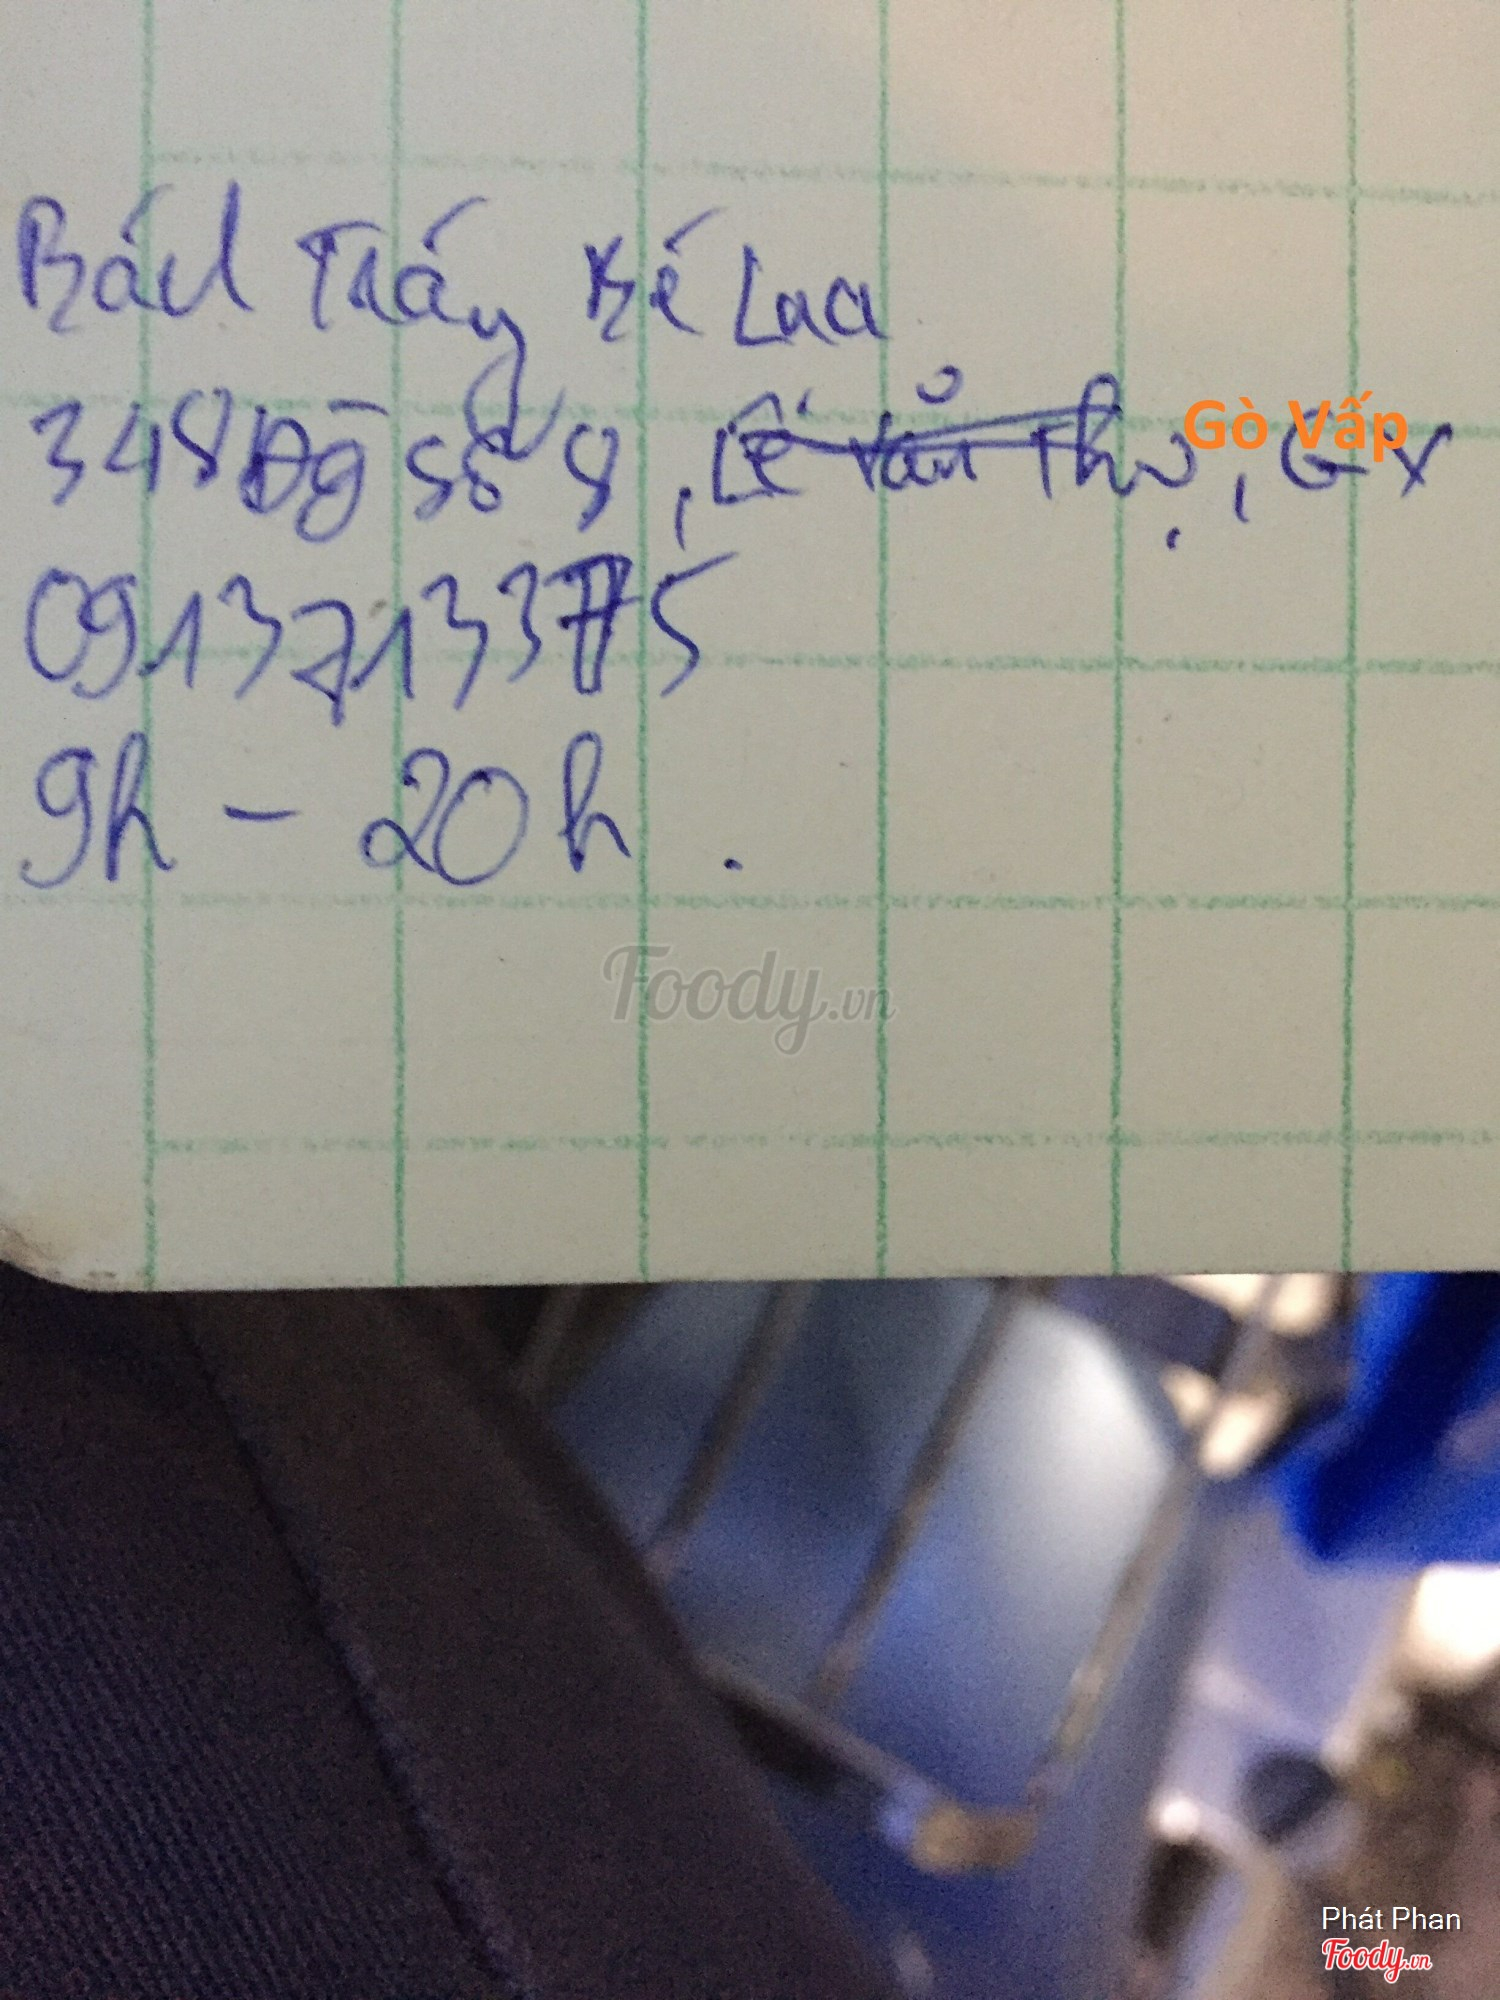 Bánh Tráng Bé Lua
348 Đg số 8, Lê Văn Thọ, Gò Vấp
0913713375
9h - 20h.
Foody.vn
Phát Phan
Foody.vn